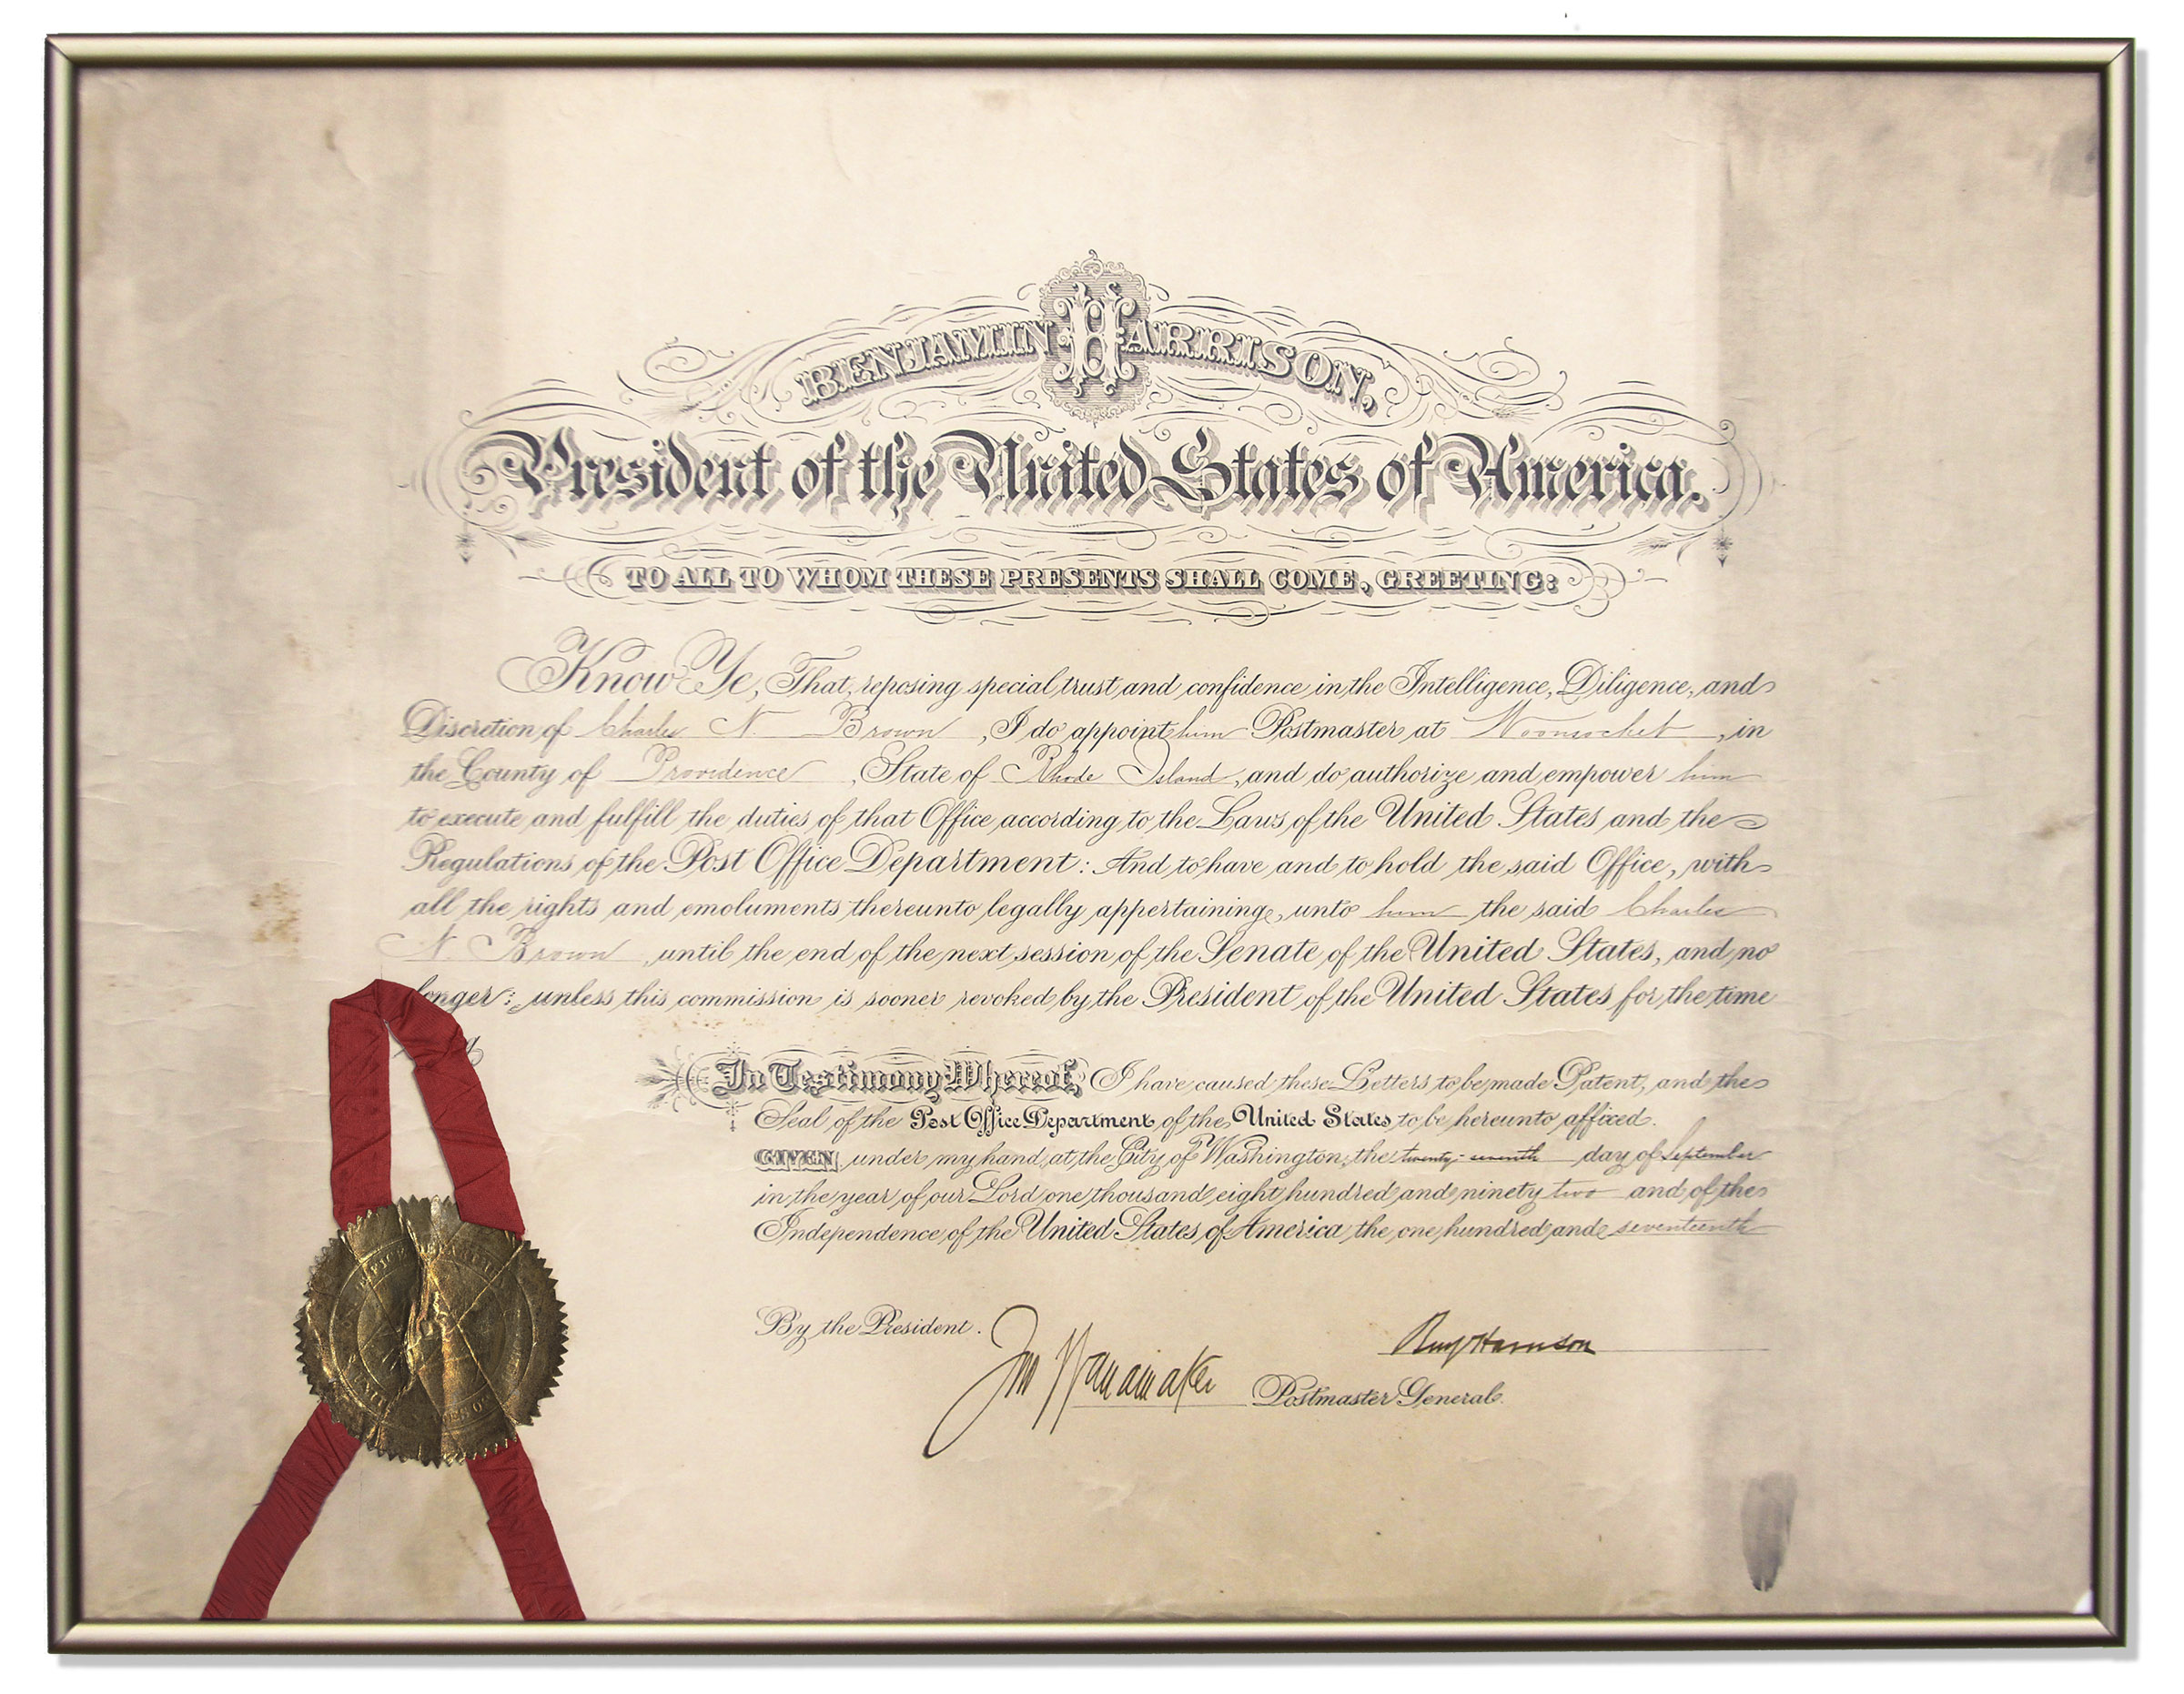 BENJAMIN HARRISON,
President of the United States of America.
TO ALL TO WHOM THESE PRESENTS SHALL COME, GREETING:
Know Ye, That, reposing special trust and confidence in the Intelligence, Diligence, and
Discretion of Charles N. Brown, I do appoint him Postmaster at Woonsocket, in
the County of Providence, State of Rhode Island, and do authorize and empower him
to execute and fulfill the duties of that Office according to the Laws of the United States and the
Regulations of the Post Office Department: And to have and to hold the said Office, with
all the rights and emoluments thereunto legally appertaining, unto him the said Charles
N. Brown, until the end of the next session of the Senate of the United States, and no
longer; unless this commission is sooner revoked by the President of the United States for the time
In Testimony Whereof, I have caused these Letters to be made Patent, and the
Seal of the Post Office Department of the United States to be hereunto affixed.
GIVEN under my hand, at the City of Washington, the twenty-seventh day of September
in the year of our Lord one thousand eight hundred and ninety two and of the
Independence of the United States of America the one hundred and seventeenth
By the President.
Benj Harrison
Jno Wanamaker Postmaster General.